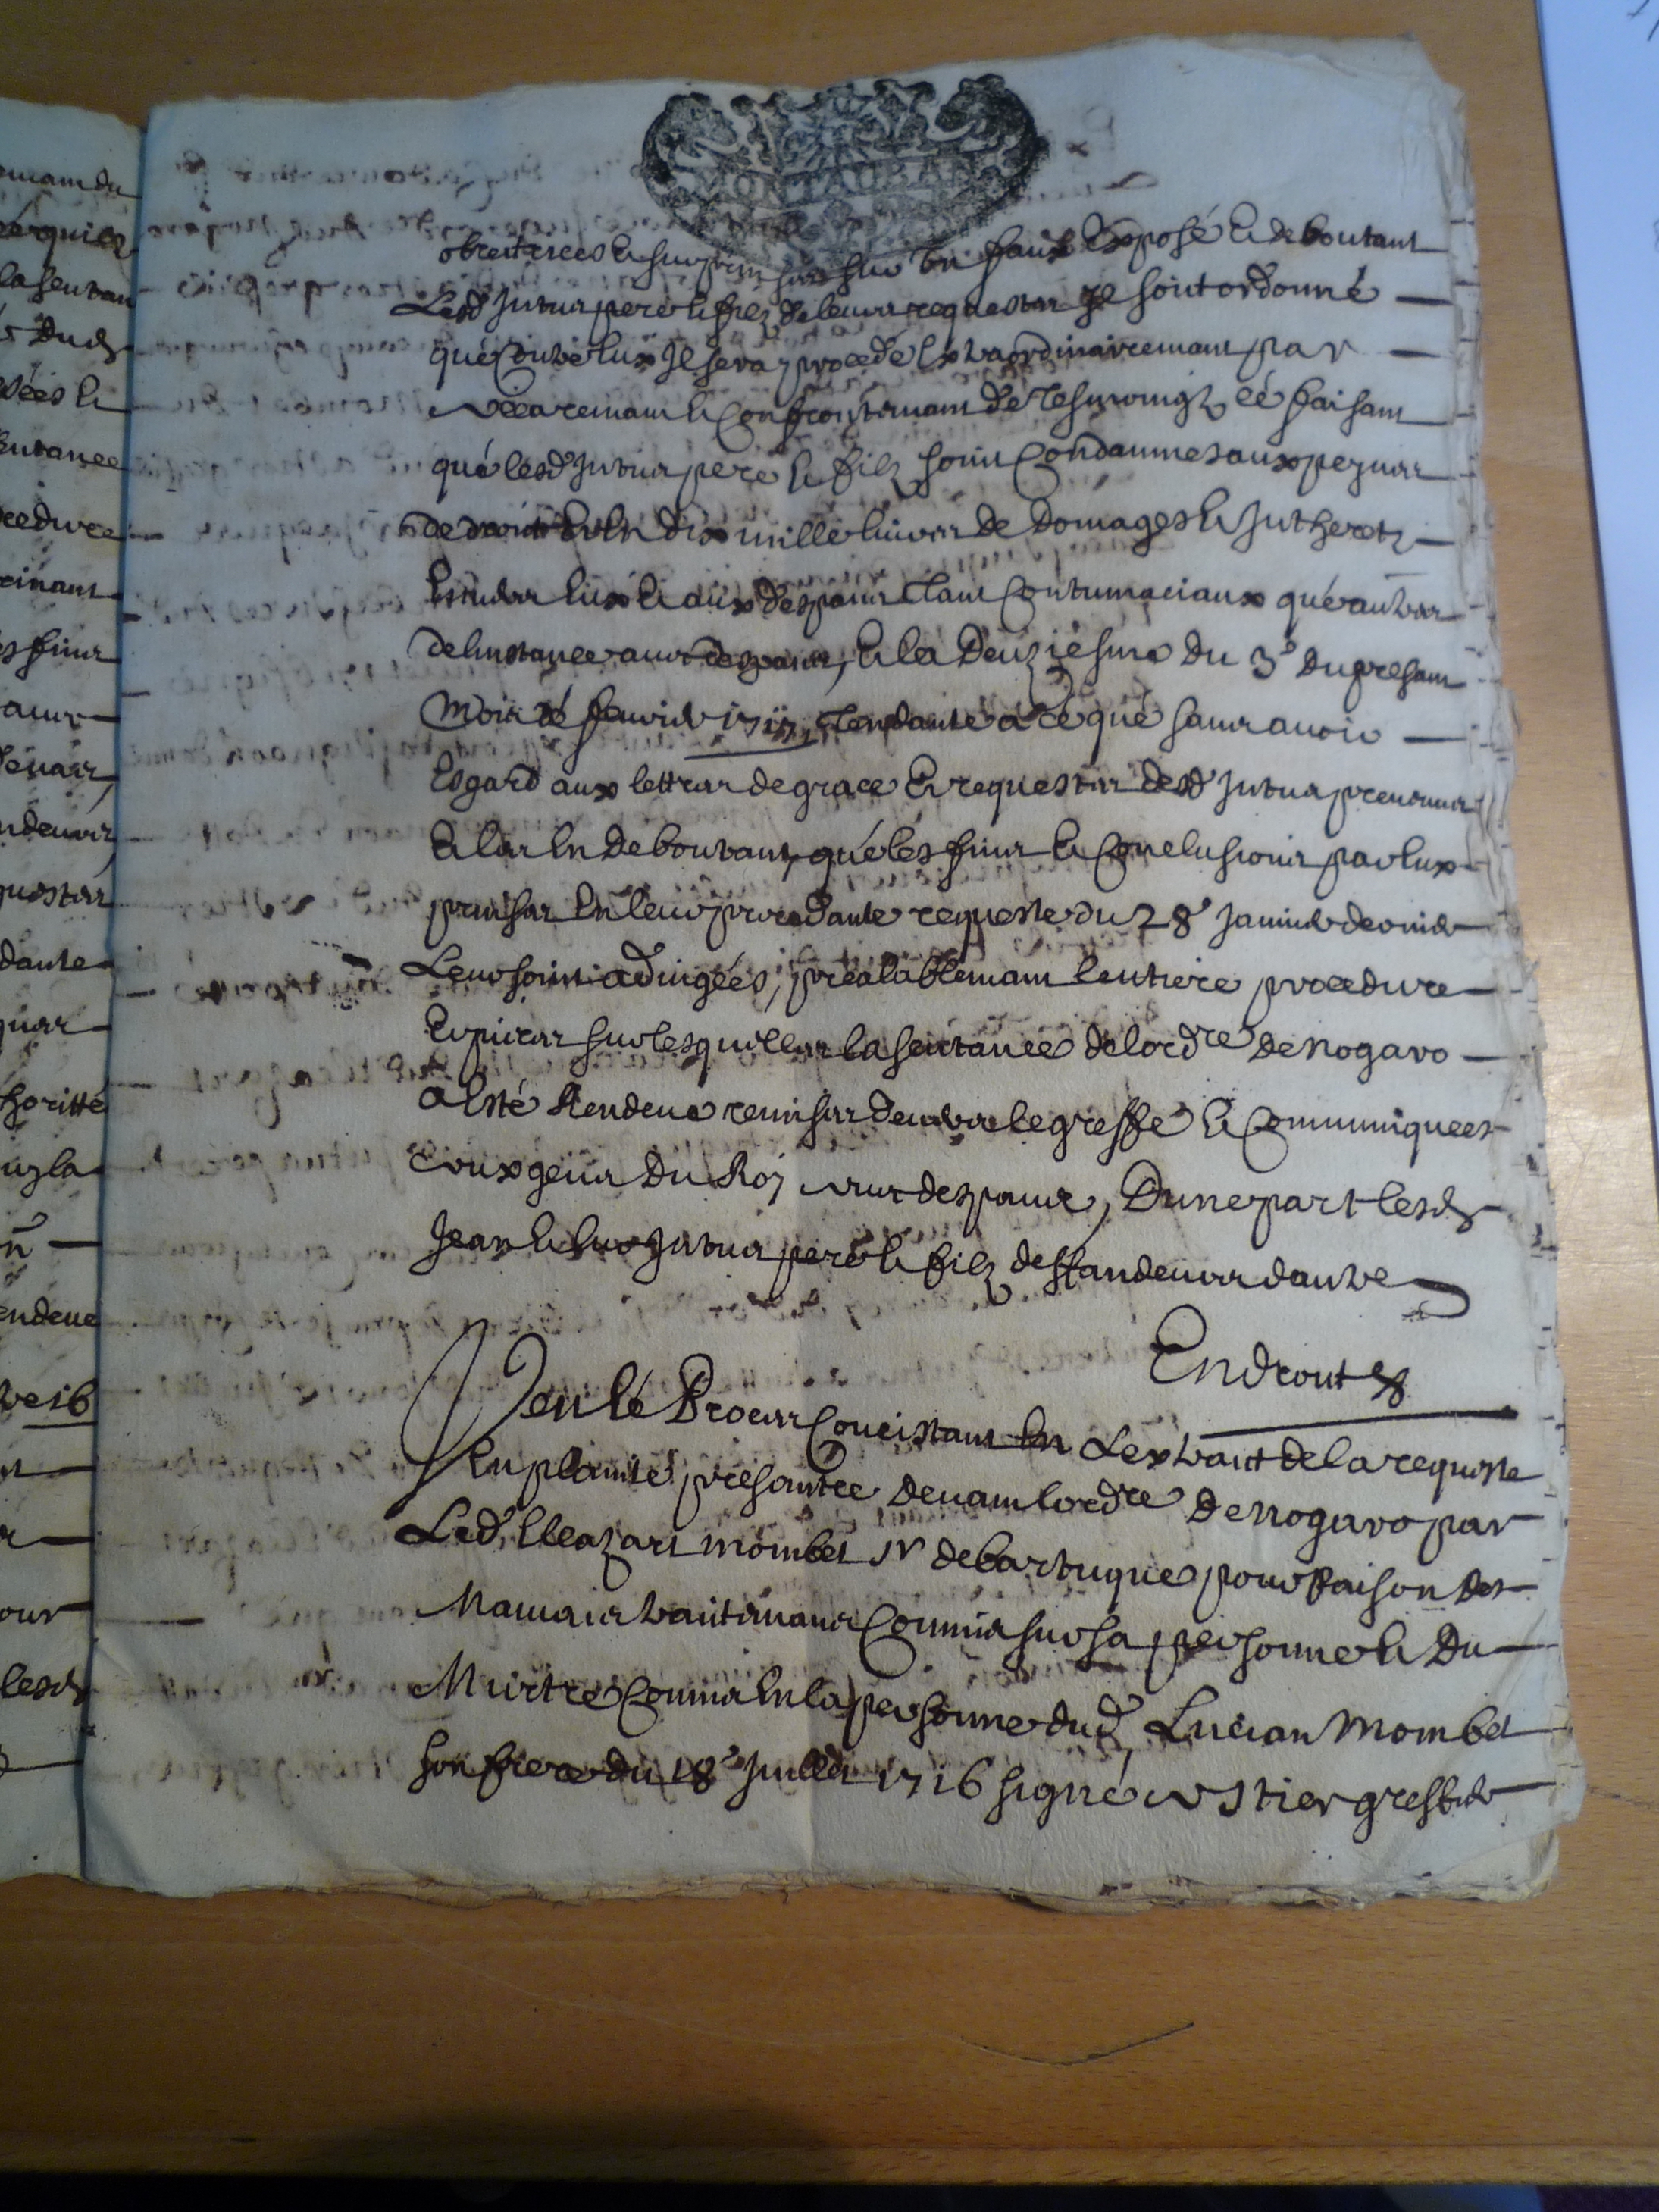 MONTAUBAN
obreticees et surprinses sur un faux exposé et deboutant
Lesd Jutua pere et filz de leurs requestes Il soit ordonné
que contre eux Il sera procedé extraordinairemant par
recaremant et confrontemant de Tesmoingz cé faisam
qué lesd Jutua pere et filz soint condamnes aux peynes
de droit et en dix mille livres de domages et Jntheretz
Envers eux et aux despans Tant contumaciaux qué autres
de linstance avec despans, et la deuziesme du 3e du presam
Mois dé fevrier 1717, Tendante a cé qué sans avoir
Esgard aux lettres de grace et requestes desd Jutua prevenus
et les en deboutant, qué lés fins et conclusions par eux
prinses en leur precedante requeste du 28e Janvier dernier
Leur soint adiugées, prealablemam lentiere procedure
et pieces sur lesquelles la sentance de lordre de nogaro
a esté Rendeue remises devers le greffe et communiquees
aux gens du Roy avec despans, Dune part lesd
Jean et Luc Jutua pere et filz deffandeurs dautre
Endroit
Veu lé Proces concistant en Lextrait de la requeste
en plainte presantée devam lordre de nogaro par
Led. Eleazart mombet sr de bartuque pour Raison des
Mauvais traitemans commis sur sa personne et du
Murtre commis en la personne dud. Lucian Mombet
son frere du 18e Juillet 1716 signé ustier greffier
emam du
la sentan
dud
vées et
entance
cedure
es fins
avec
quar
horitté
endeue
tre 16
our
lesd